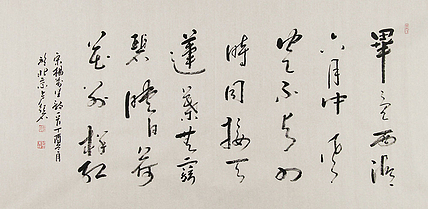 畢竟西湖
六月中風
光不與四
時同接天
蓮葉無窮
碧映日荷
花別樣紅
宋楊萬里詩
於北京